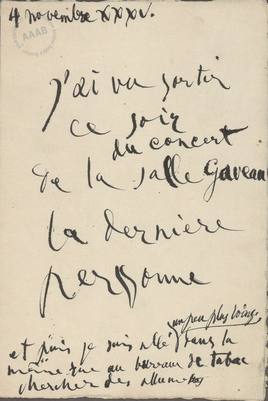 4 novembre XXXV.
AAAB
j'ai vu sortir
ce soir
du concert
de la salle Gaveau
la dernière
personne
un peu plus loing
et puis je suis allé dans la
même rue au bureau de tabac
chercher des allumettes